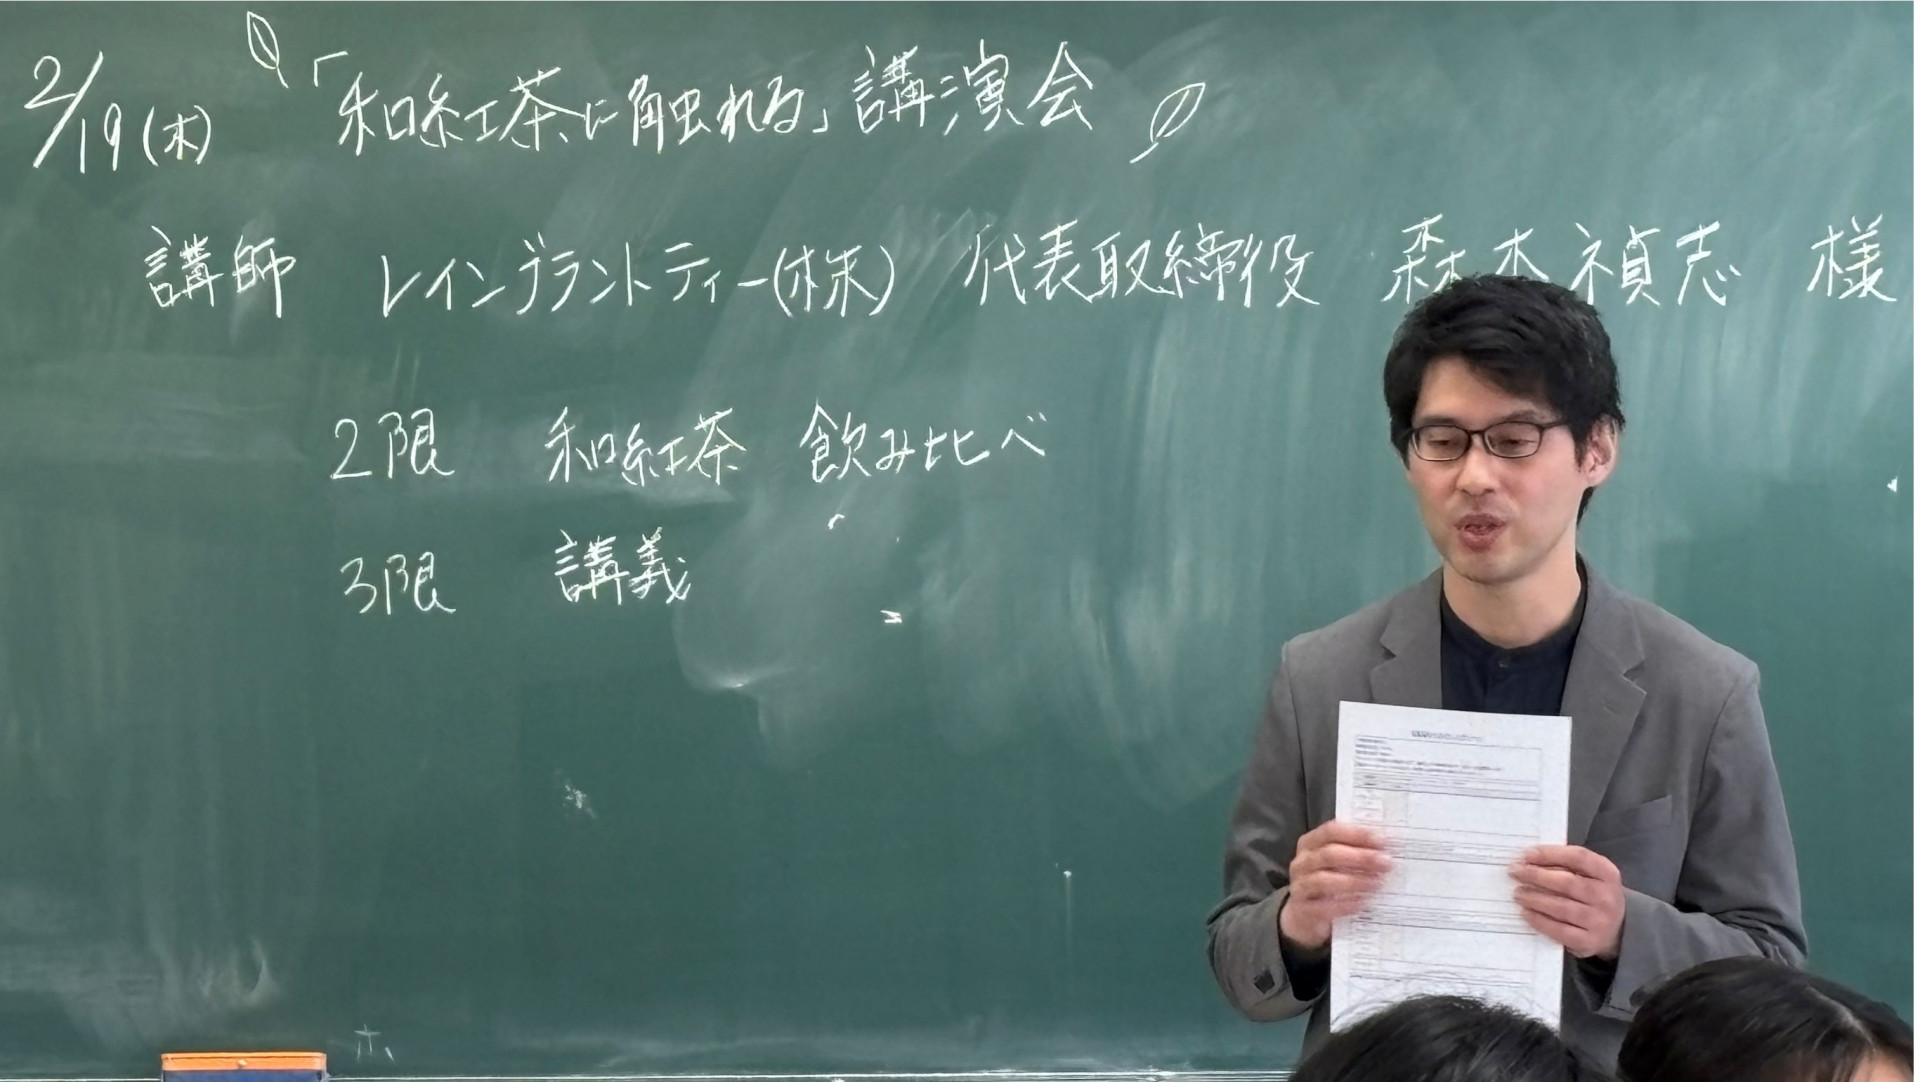 2/19(木) 「和紅茶に触れる」講演会
講師 レインブラントティー(株) 代表取締役 森本禎志 様
2限 和紅茶 飲み比べ
3限 講義